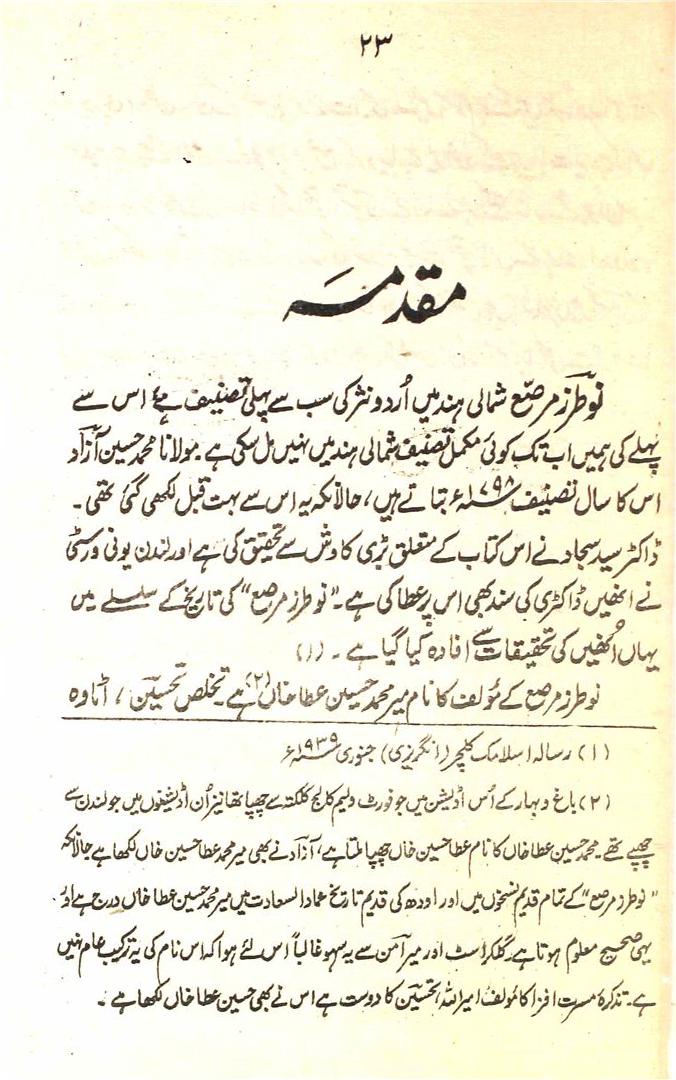 ۲۳
مقدمہ
نوطرز مرصّع شمالی ہند میں اُردو نثر کی سب سے پہلی تصنیف ہے اس سے
پہلے کی ہمیں اب تک کوئی مکمل تصنیف شمالی ہند میں نہیں مل سکی ہے۔ مولانا محمد حسین آزاد
اس کا سال تصنیف ۱۷۹۸ء بتاتے ہیں، حالانکہ یہ اس سے بہت قبل لکھی گئی تھی۔
ڈاکٹر سید سجاد نے اس کتاب کے متعلق بڑی کاوش سے تحقیق کی ہے اور لندن یونی ورسٹی
نے انھیں ڈاکٹری کی سند بھی اس پر عطا کی ہے۔ "نوطرز مرصع" کی تاریخ کے سلسلے میں
یہاں اُنھیں کی تحقیقات سے افادہ کیا گیا ہے۔ (۱)
نوطرز مرصع کے مؤلف کا نام میر محمد حسین عطا خاں (۲) ہے۔ تخلص تحسین، اٹاوہ
(۱) رسالہ اسلامک کلچر (انگریزی) جنوری ۱۹۳۹ء
(۲) باغ و بہار کے اُس اڈیشن میں جو فورٹ ولیم کالج کلکتہ سے چھپا تھا نیز اُن اڈیشنوں میں جو لندن سے
چھپے تھے۔ محمد حسین عطا خاں کا نام عطا حسین خاں چھپا ملتا ہے، آزاد نے بھی میر محمد عطا حسین خاں لکھا ہے حالانکہ
"نوطرز مرصع" کے تمام قدیم نسخوں میں اور اودھ کی قدیم تاریخ عماد السعادت میں میر محمد حسین عطا خاں درج ہے اور
یہی صحیح معلوم ہوتا ہے۔ گلکراسٹ اور میر امن سے یہ سہو غالباً اس لئے ہوا کہ اس نام کی یہ ترکیب عام نہیں
ہے۔ تذکرۂ مسرت افزا کا مؤلف امیر اللہ، تحسین کا دوست ہے اس نے بھی حسین عطا خاں لکھا ہے۔